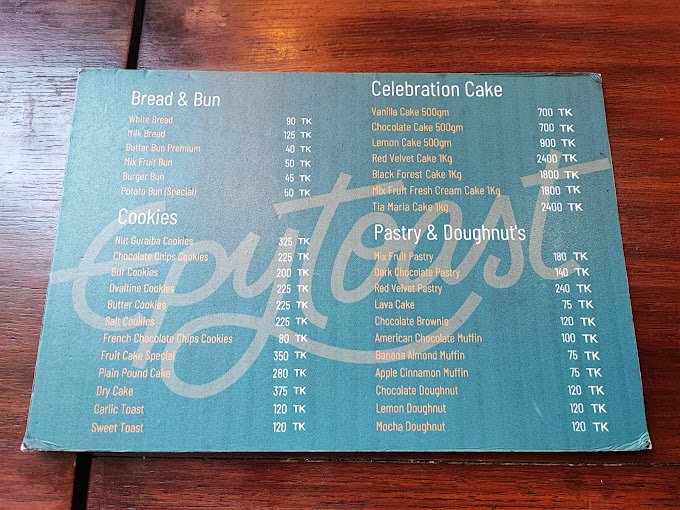 Bread & Bun
White Bread 90 TK
Milk Bread 125 TK
Butter Bun Premium 40 TK
Mix Fruit Bun 50 TK
Burger Bun 45 TK
Potato Bun (Special) 50 TK
Cookies
Nut Guraiba Cookies 325 TK
Chocolate Chips Cookies 225 TK
Gur Cookies 200 TK
Ovaltine Cookies 225 TK
Butter Cookies 225 TK
Salt Cookies 225 TK
French Chocolate Chips Cookies 80 TK
Fruit Cake Special 350 TK
Plain Pound Cake 280 TK
Dry Cake 375 TK
Garlic Toast 120 TK
Sweet Toast 120 TK
Celebration Cake
Vanilla Cake 500gm 700 TK
Chocolate Cake 500gm 700 TK
Lemon Cake 500gm 900 TK
Red Velvet Cake 1Kg 2400 TK
Black Forest Cake 1Kg 1800 TK
Mix Fruit Fresh Cream Cake 1Kg 1800 TK
Tia Maria Cake 1Kg 2400 TK
Pastry & Doughnut's
Mix Fruit Pastry 180 TK
Dark Chocolate Pastry 140 TK
Red Velvet Pastry 240 TK
Lava Cake 75 TK
Chocolate Brownie 120 TK
American Chocolate Muffin 100 TK
Banana Almond Muffin 75 TK
Apple Cinnamon Muffin 75 TK
Chocolate Doughnut 120 TK
Lemon Doughnut 120 TK
Mocha Doughnut 120 TK